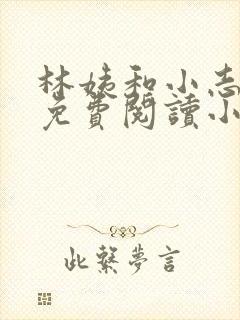 林姨和小志
免費閱讀小
此繫夢言